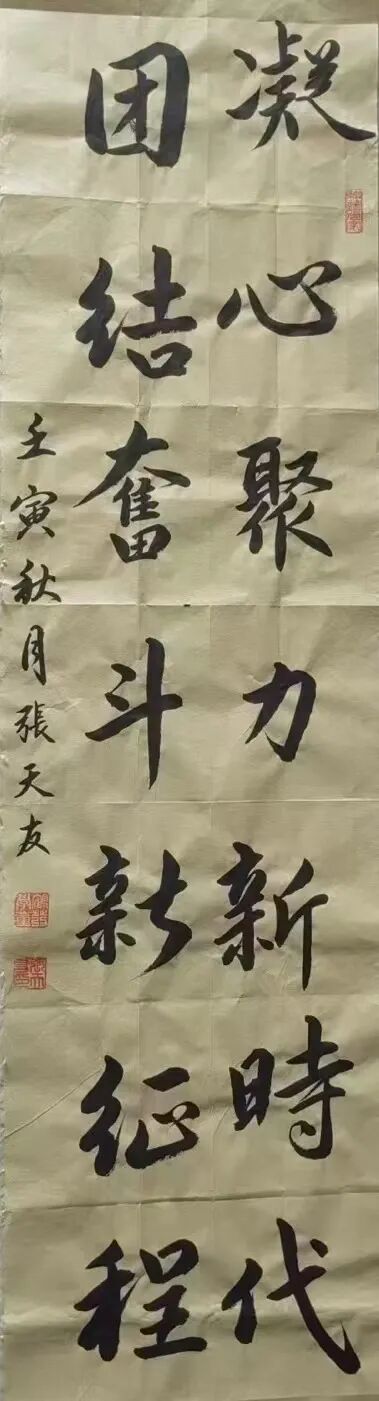 凝心聚力新時代
团结奮斗新征程
壬寅秋月張天友